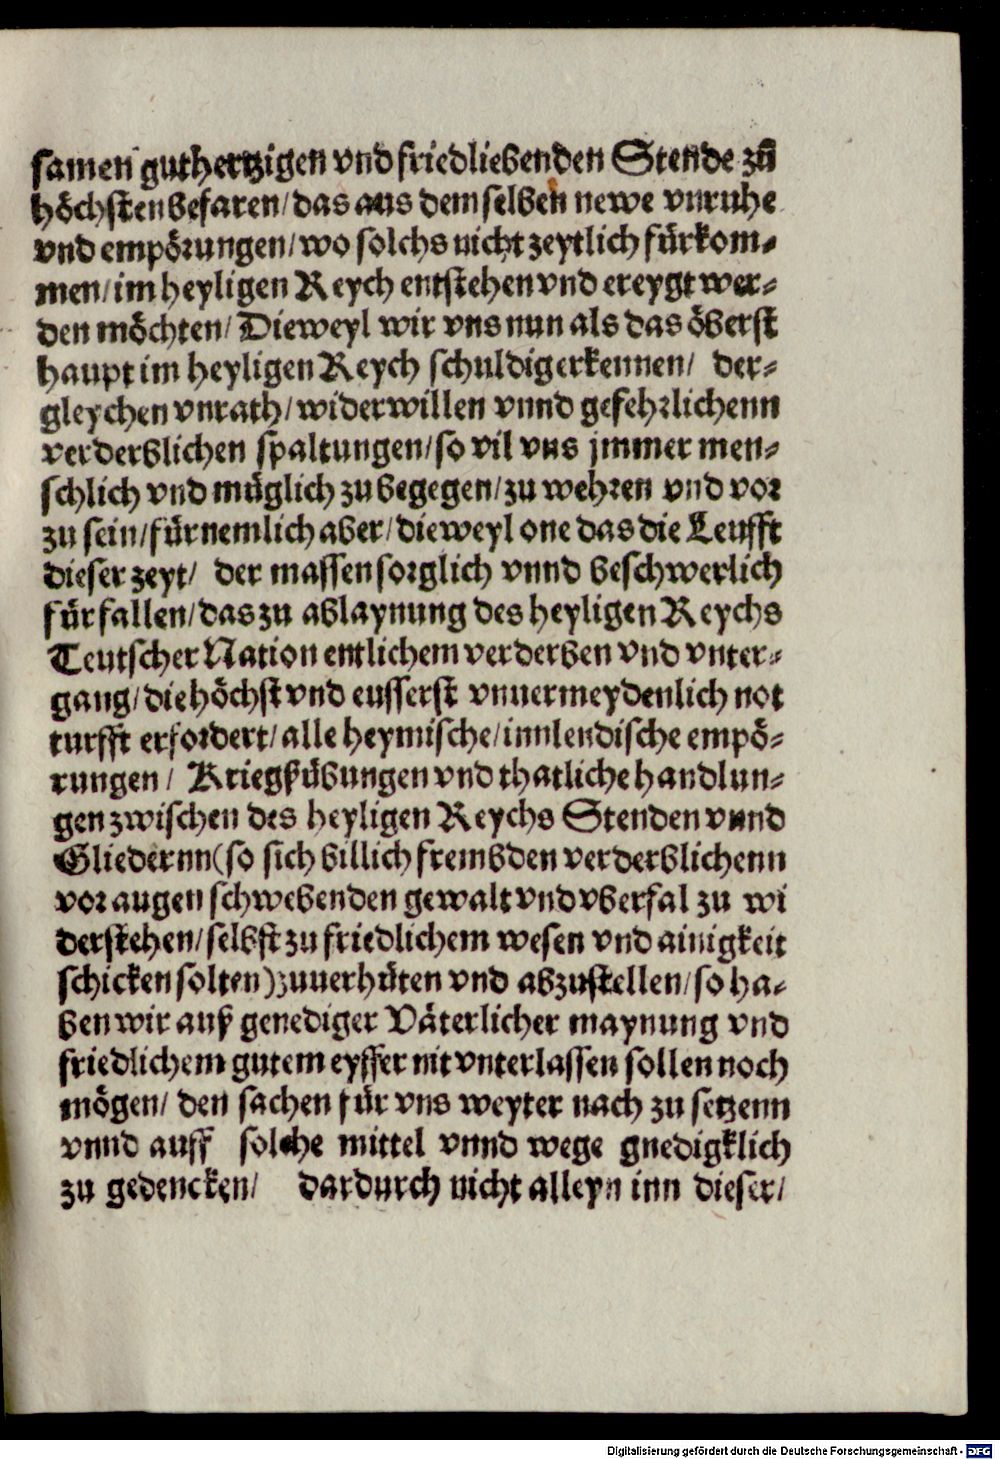 samen guthertzigen vnd friedliebenden Stende zů
höchsten befaren/ das aus dem selben newe vnruhe
vnd empörungen/ wo solchs nicht zeytlich fürkom-
men/ im heyligen Reych entstehen vnd ereygt wer-
den möchten/ Dieweyl wir vns nun als das öberst
haupt im heyligen Reych schuldig erkennen/ der-
gleychen vnrath/ widerwillen vnnd gefehrlichenn
verderblichen spaltungen/ so vil vns jmmer men-
schlich vnd müglich zu begegen/ zu wehren vnd vor
zu sein/ fürnemlich aber/ dieweyl one das die Leufft
dieser zeyt/ der massen sorglich vnnd beschwerlich
für fallen/ das zu ablaynung des heyligen Reychs
Teutscher Nation entlichem verderben vnd vnter-
gang/ die höchst vnd eusserst vnuermeydenlich not
turfft erfordert/ alle heymische/ innlendische empö-
rungen/ Kriegßübungen vnd thatliche handlun-
gen zwischen des heyligen Reychs Stenden vnnd
Gliedernn (so sich billich frembden verderblichenn
vor augen schwebenden gewalt vnd vberfal zu wi
derstehen/ selbst zu friedlichem wesen vnd ainigkeit
schicken solten) zuuerhüten vnd abzustellen/ so ha-
ben wir auß genediger Väterlicher maynung vnd
friedlichem gutem eyffer nit vnterlassen sollen noch
mögen/ den sachen für vns weyter nach zu setzenn
vnnd auff solche mittel vnnd wege gnedigklich
zu gedencken/ dardurch nicht alleyn inn dieser/
Digitalisierung gefördert durch die Deutsche Forschungsgemeinschaft - DFG